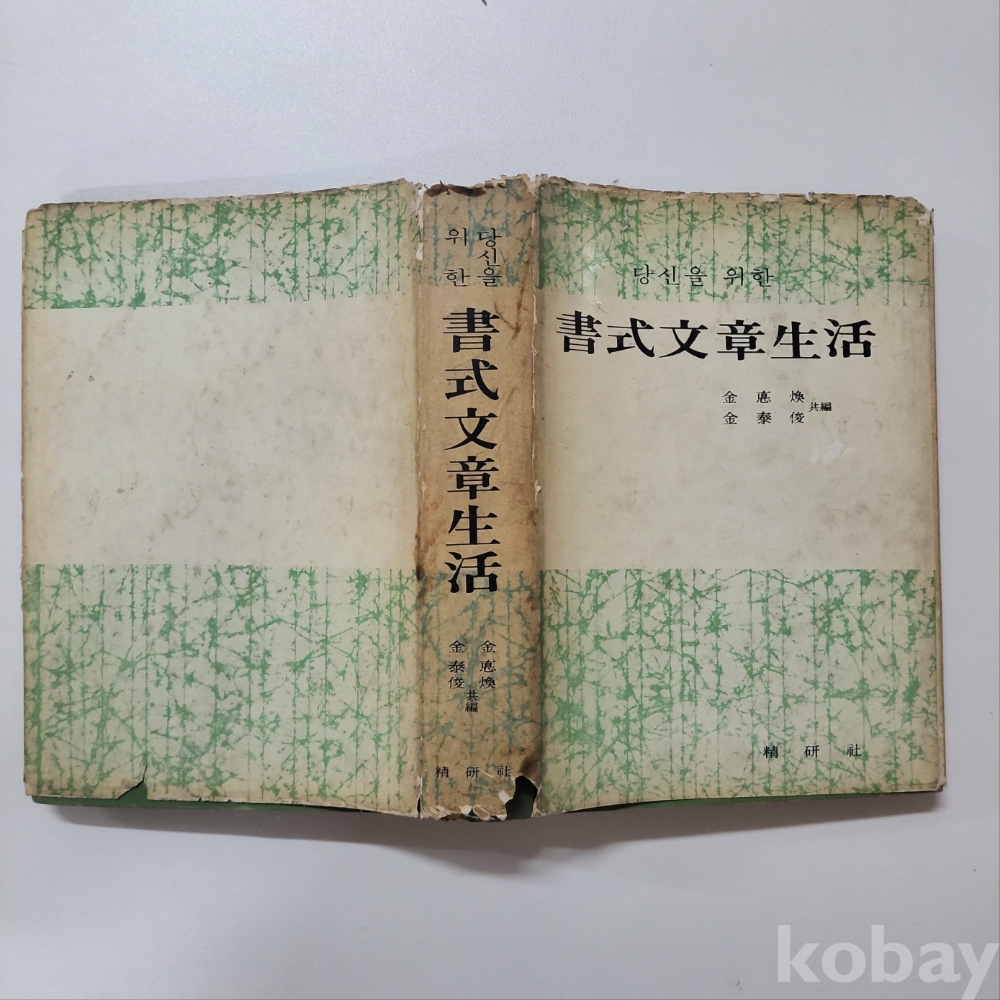 당신을
위한
書式文章生活
金悳煥
金泰俊
共編
精研社
당신을 위한
書式文章生活
金悳煥
金泰俊
共編
精研社
kobay